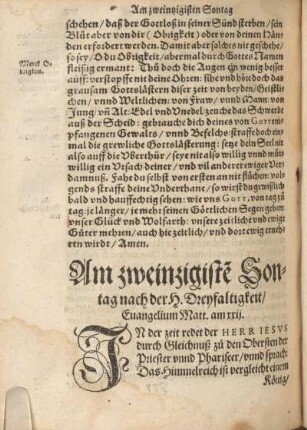 Am zweinzigisten Sontag
schehen/ daß der Gottloß in seiner Sünd sterben/ sein
Blůt aber von dir (Obigkeit) oder von deinen Hän-
den erfordert werden. Damit aber solchs nit geschehe/
so sey/ O du Obrigkeit/ abermal durch Gottes Namen
Merck O-
brigkeit.
fleissig ermant: Thů doch die Augen ein wenig besser
auff: verstopffe nit deine Ohren: sihe vnd höre doch das
grausam Gottslästern diser zeit von beyden/ Geistli-
chen/ vnnd Weltlichen: von Fraw/ vnnd Mann: von
Jung/ vñ Alt: Edel vnd Vnedel: zeuche das Schwerdt
auß der Scheid: gebrauche dich deines von Gott em-
pfangenen Gewalts/ vnnd Befelchs: straffe doch ein-
mal die grewliche Gottslästerung: setze dein Seel nit
also auff die Vberthür/ sey nit also willig vnnd můt-
willig ein Vrsach deiner/ vnd vil anderer ewiger Ver-
damnuß. Fahe du selbst von ersten an nit flůchen: vol-
gends straffe deine Vnderthane/ so wirstu augwislich
bald vnd hauffechtig sehen: wie vns Gott, von tag zů
tag: je länger/ je mehr: seinen Göttlichen Segen geben:
vnser Glück vnd Wolfarth: vnsere zeitliche vnd ewige
Güter mehren/ auch hie zeitlich/ vnd dort ewig erneh-
ren wirdt/ Amen.
Am zweinzigistē Son-
tag nach der H. Dreyfaltigkeit/
Euangelium Matt. am xxij.
IN der zeit redet der HERR IESVS
durch Gleichnuß zů den Obersten der
Priester vnnd Phariseer/ vnnd sprach:
Das Himmelreich ist vergleicht einem
König/